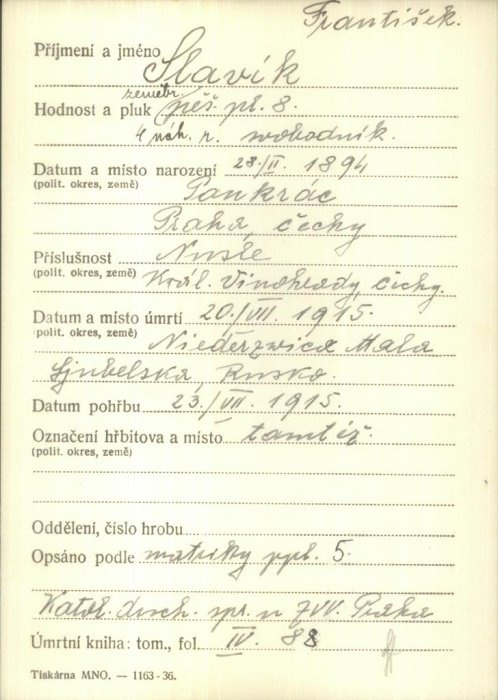 František.
Příjmení a jméno Slavík
zeměbr.
Hodnost a pluk pěš. pl. 8.
4 náh. r. svobodník.
Datum a místo narození 28./II. 1894
(polit. okres, země) Pankrác
Praha, Čechy
Příslušnost Nusle
(polit. okres, země) Král. Vinohrady, Čechy,
Datum a místo úmrtí 20./VII. 1915.
(polit. okres, země) Niederzwica Mala
Ljubelska, Rusko.
Datum pohřbu 23./VII. 1915.
Označení hřbitova a místo tamtéž.
(polit. okres, země)
Oddělení, číslo hrobu
Opsáno podle matriky ppl. 5.
Katol. duch. spr. u ZVV. Praha
Úmrtní kniha: tom., fol. IV. 88
Tiskárna MNO. — 1163-36.